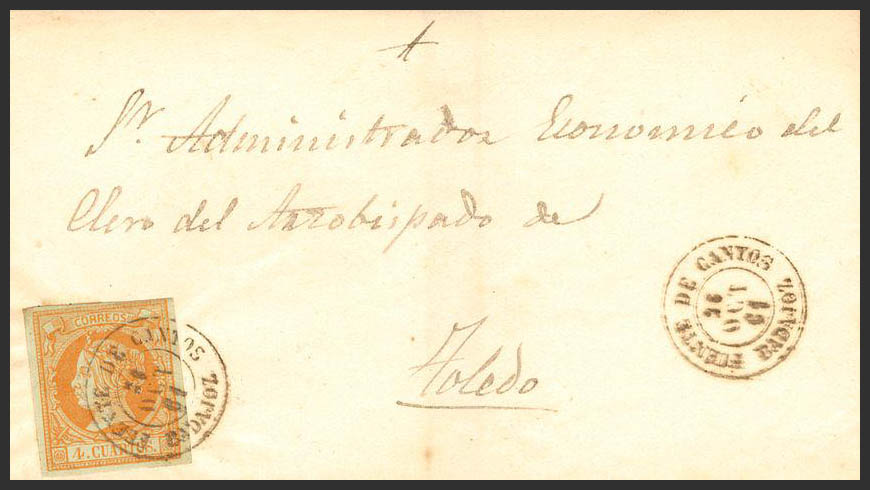 Sr. Administrador Economico del
Clero del Arzobispado de
Toledo
FUENTE DE CANTOS
BADAJOZ
OCT
61
CORREOS
4 CUARTOS
FUENTE DE CANTOS
BADAJOZ
OCT
61